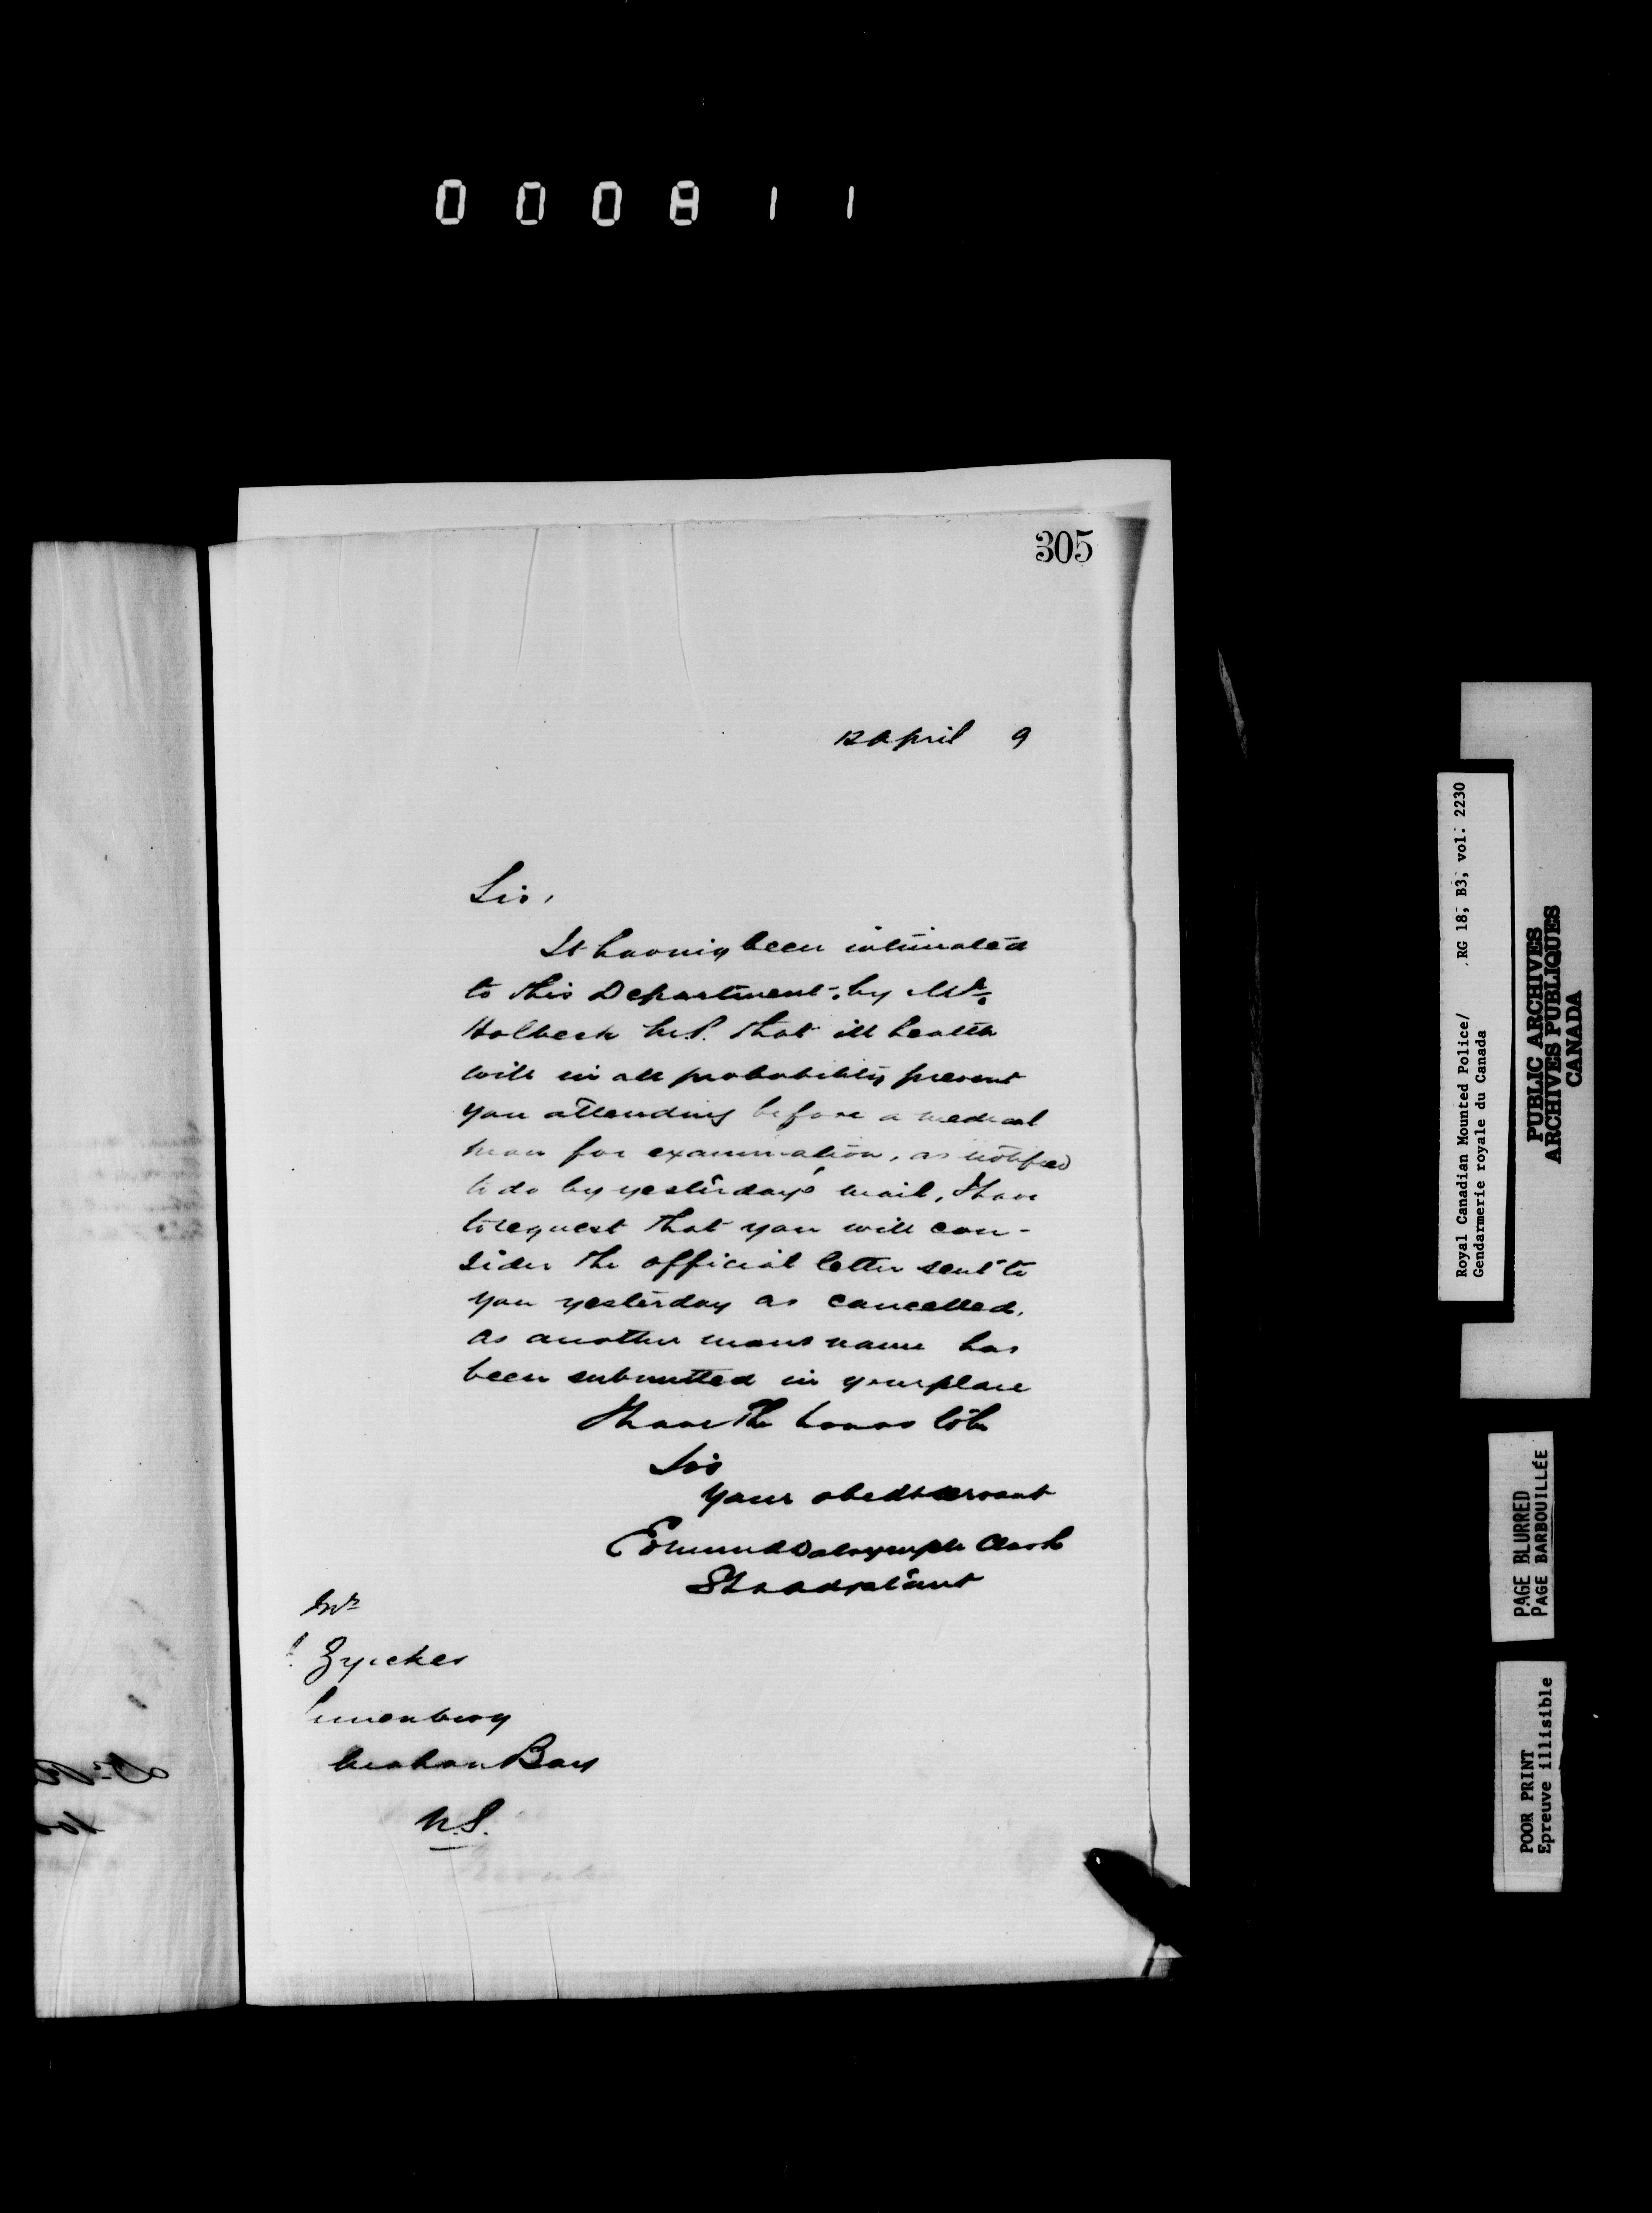 000811
305
12 April 9
Sir,
It having been intimated
to this Department, by Mr.
Holbeck M.P. that ill health
will in all probability prevent
you attending before a medical
man for examination, as notified
to do by yesterday's mail, I have
to request that you will con-
sider the official letter sent to
you yesterday as cancelled,
as another mans name has
been submitted in your place
I have the honor to be
Sir
Your obedt servant
Edmund Dalrymple Clark
Mr
Zyicker
Lunenburg
Mahon Bay
N.S.
Royal Canadian Mounted Police/ RG 18, B3, vol. 2230
Gendarmerie royale du Canada
PUBLIC ARCHIVES
ARCHIVES PUBLIQUES
CANADA
PAGE BLURRED
PAGE BARBOUILLÉE
POOR PRINT
Epreuve illisible